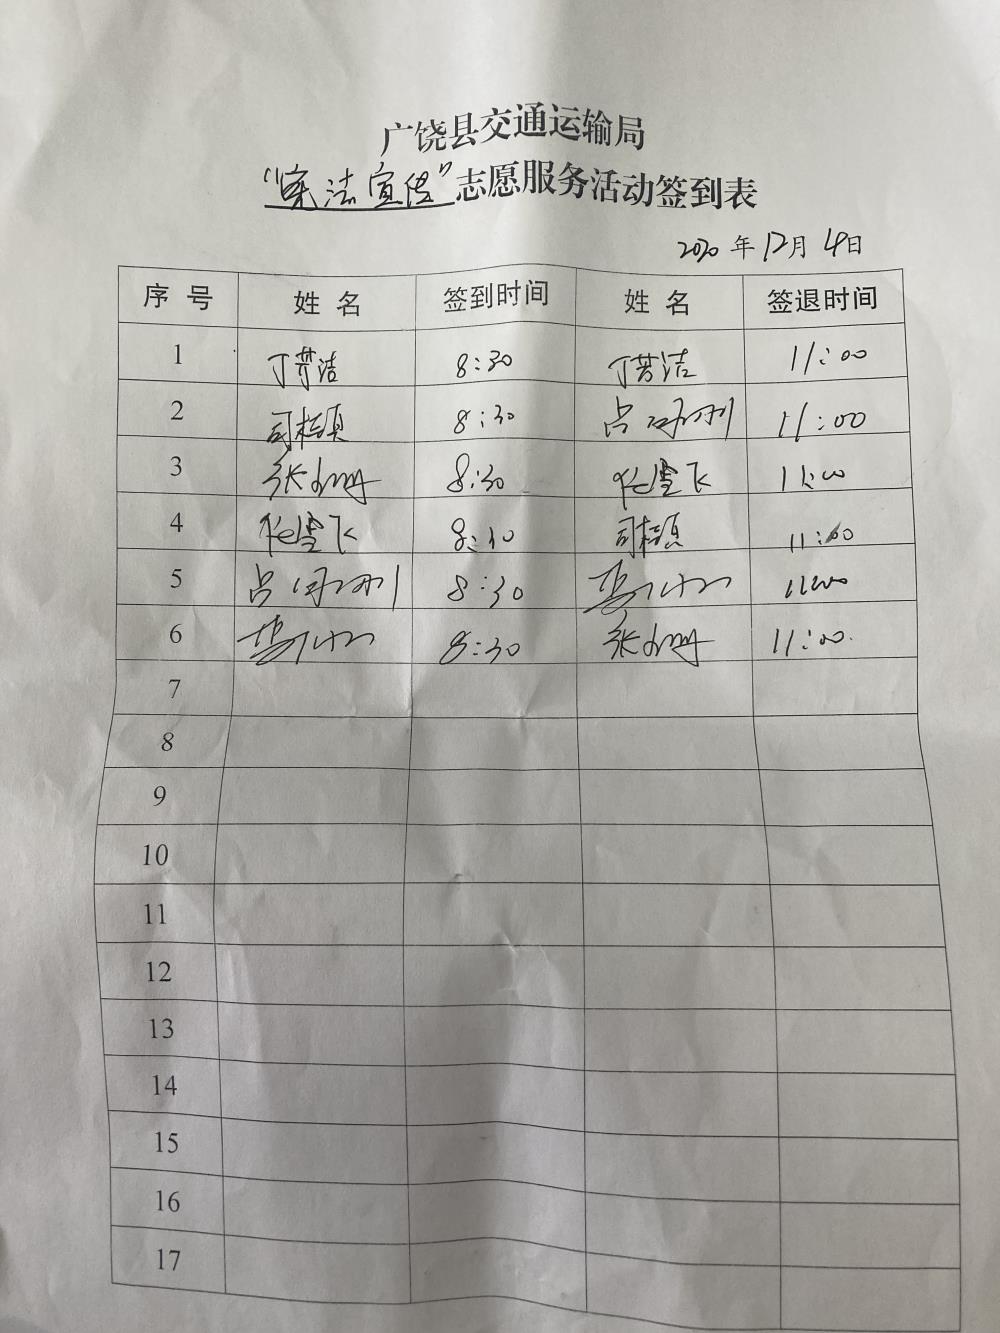 广饶县交通运输局
“宪法宣传”志愿服务活动签到表
2020年12月4日
序号 姓名 签到时间 姓名 签退时间
1 丁芳洁 8:30 丁芳洁 11:00
2 司桂贞 8:30 11:00
3 张 8:30 任雪飞 11:00
4 任雪飞 8:30 司桂贞 11:00
5 8:30 11:00
6 8:30 张 11:00
7
8
9
10
11
12
13
14
15
16
17